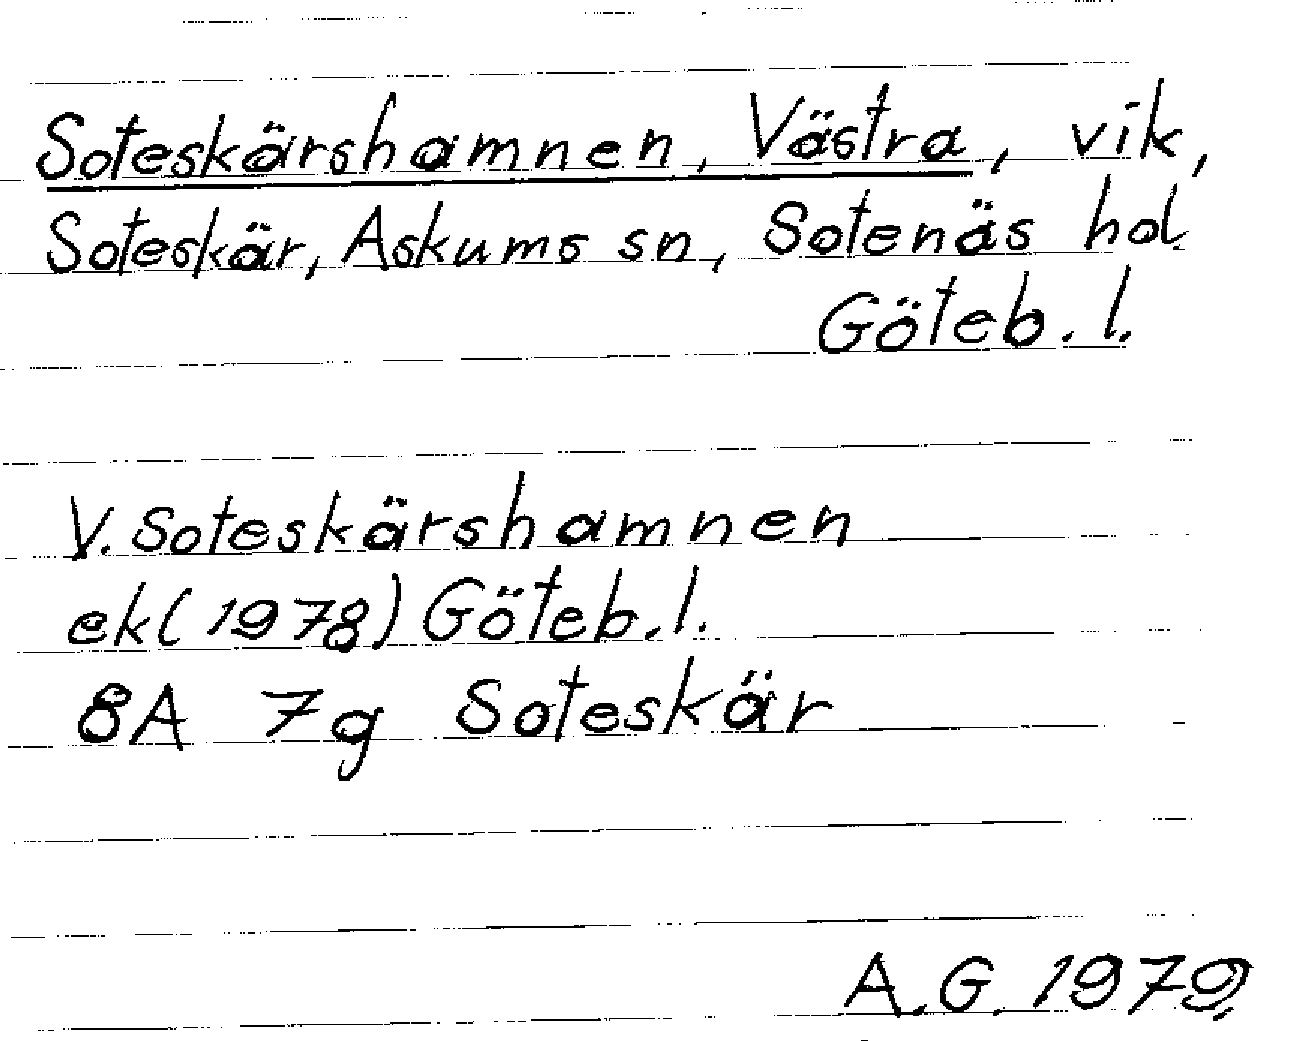 Soteskärshamnen, Västra, vik,
Soteskär, Askums sn, Sotenäs hd.
Göteb. l.
V. Soteskärshamnen
ek (1978) Göteb. l.
8A 7g Soteskär
A.G. 1979.